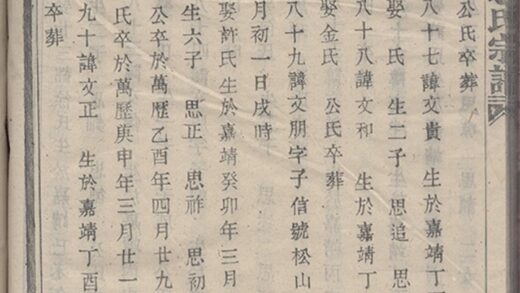 氏宗譜
公氏卒葬
八十七諱文貴 生於嘉靖丁
娶 氏 生二子 思追 思
八十八諱文和 生於嘉靖丁
娶金氏 公氏卒葬
八十九諱文朋字子信號松山
月初一日戌時
娶許氏生於嘉靖癸卯年三月
生六子 思正 思祚 思初
公卒於萬歷乙酉年四月廿九
氏卒於萬歷庚申年三月廿一
九十諱文正 生於嘉靖丁酉
卒葬